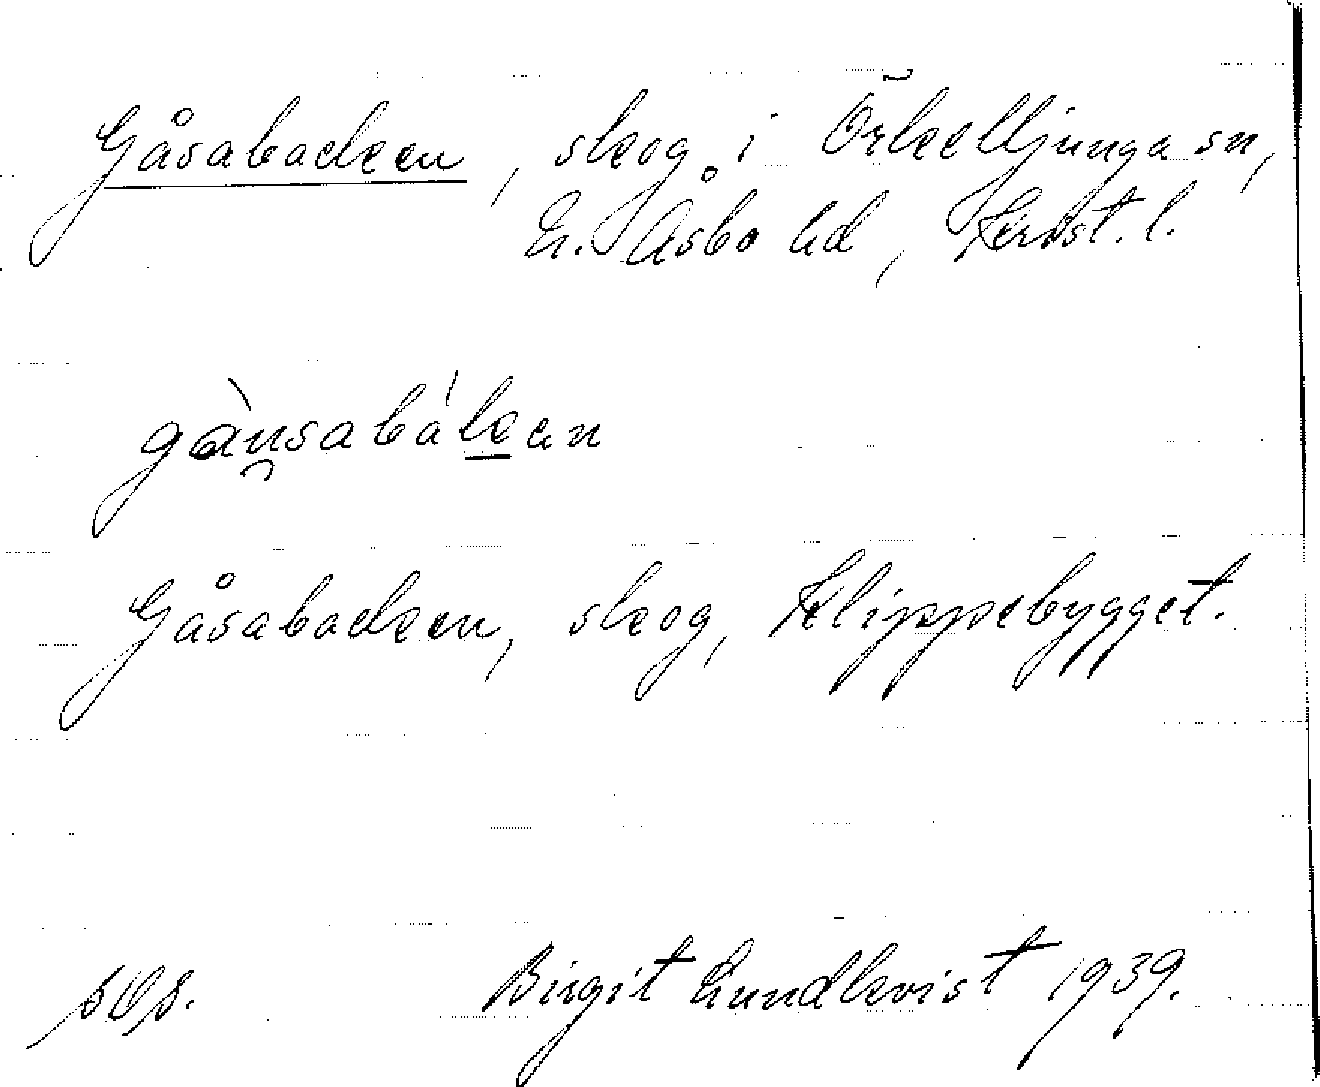 Gåsabacken, skog i Örkelljunga sn,
N. Åsbo hd, Krist. l.
gàu̯sabák̲an
Gåsabacken, skog, Klippebygget.
Birgit Lundkvist 1939.